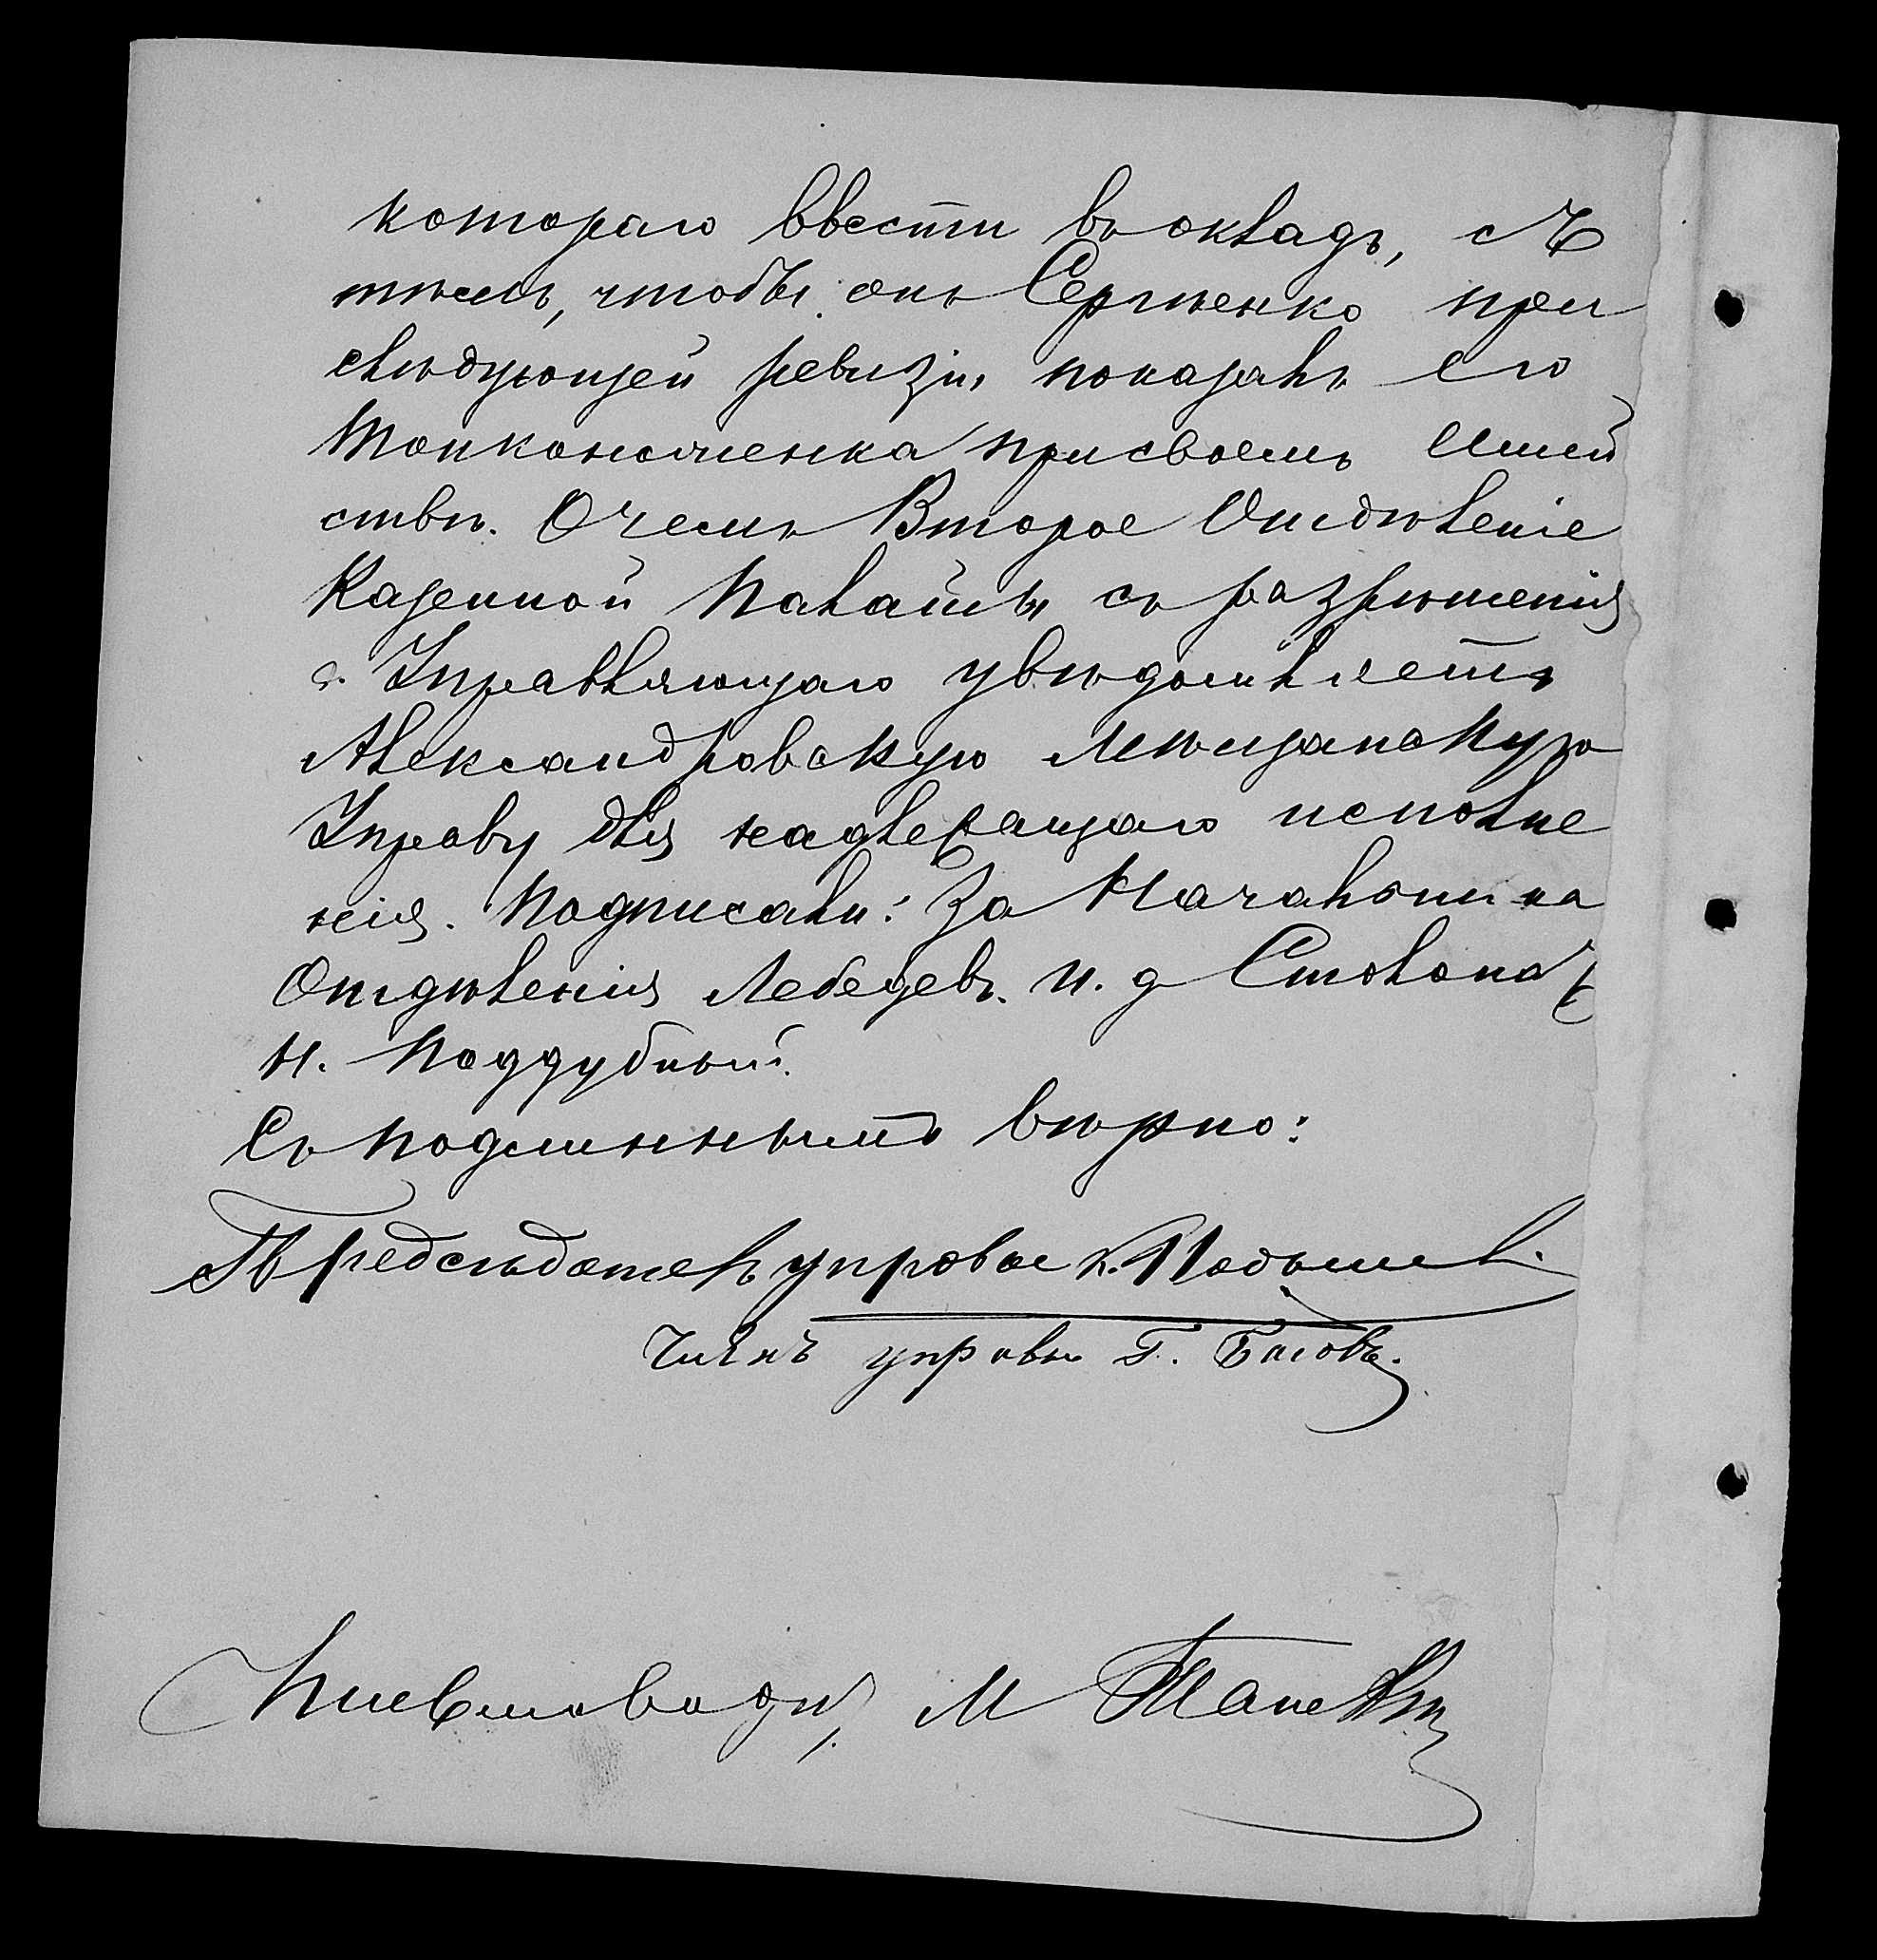 котораго ввести въ окладъ, съ
тѣмъ, чтобы онъ Сергѣенко при
слѣдующей ревизіи показалъ его
Тонконоженка при своемъ Емей
ствѣ. О чемъ Второе Отдѣленіе
Казенной Палаты съ разрѣшенія
г. Управляющаго увѣдомляетъ
Александровскую Мѣщанскую
Управу для надлежащаго исполне
нія. Подписали: За Начальника
Отдѣленія Лебедевъ. И. д Столонач
Н. Поддубный.
Съ подлиннымъ вѣрно:
Предсѣдатель управы
Членъ управы Г. Басовъ.
М